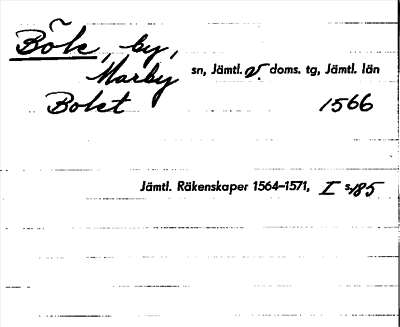 Bök, by,
Marby sn, Jämtl. v. doms. tg, Jämtl. län
Bokt 1566
Jämtl. Räkenskaper 1564–1571, I s. 185